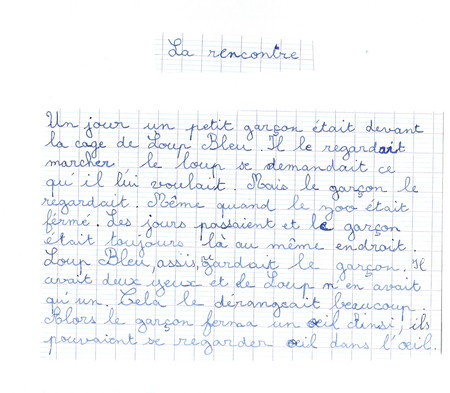 La rencontre
Un jour un petit garçon était devant
la cage de Loup Bleu. Il le regardait
marcher le loup se demandait ce
qu'il lui voulait. Mais le garçon le
regardait. Même quand le zoo était
fermé. Les jours passaient et le garçon
était toujours là au même endroit.
Loup Bleu, assis, gardait le garçon. Il
avait deux yeux et le Loup n'en avait
qu'un. Cela le dérangeait beaucoup.
Alors le garçon ferma un œil ainsi, ils
pouvaient se regarder œil dans l'œil.